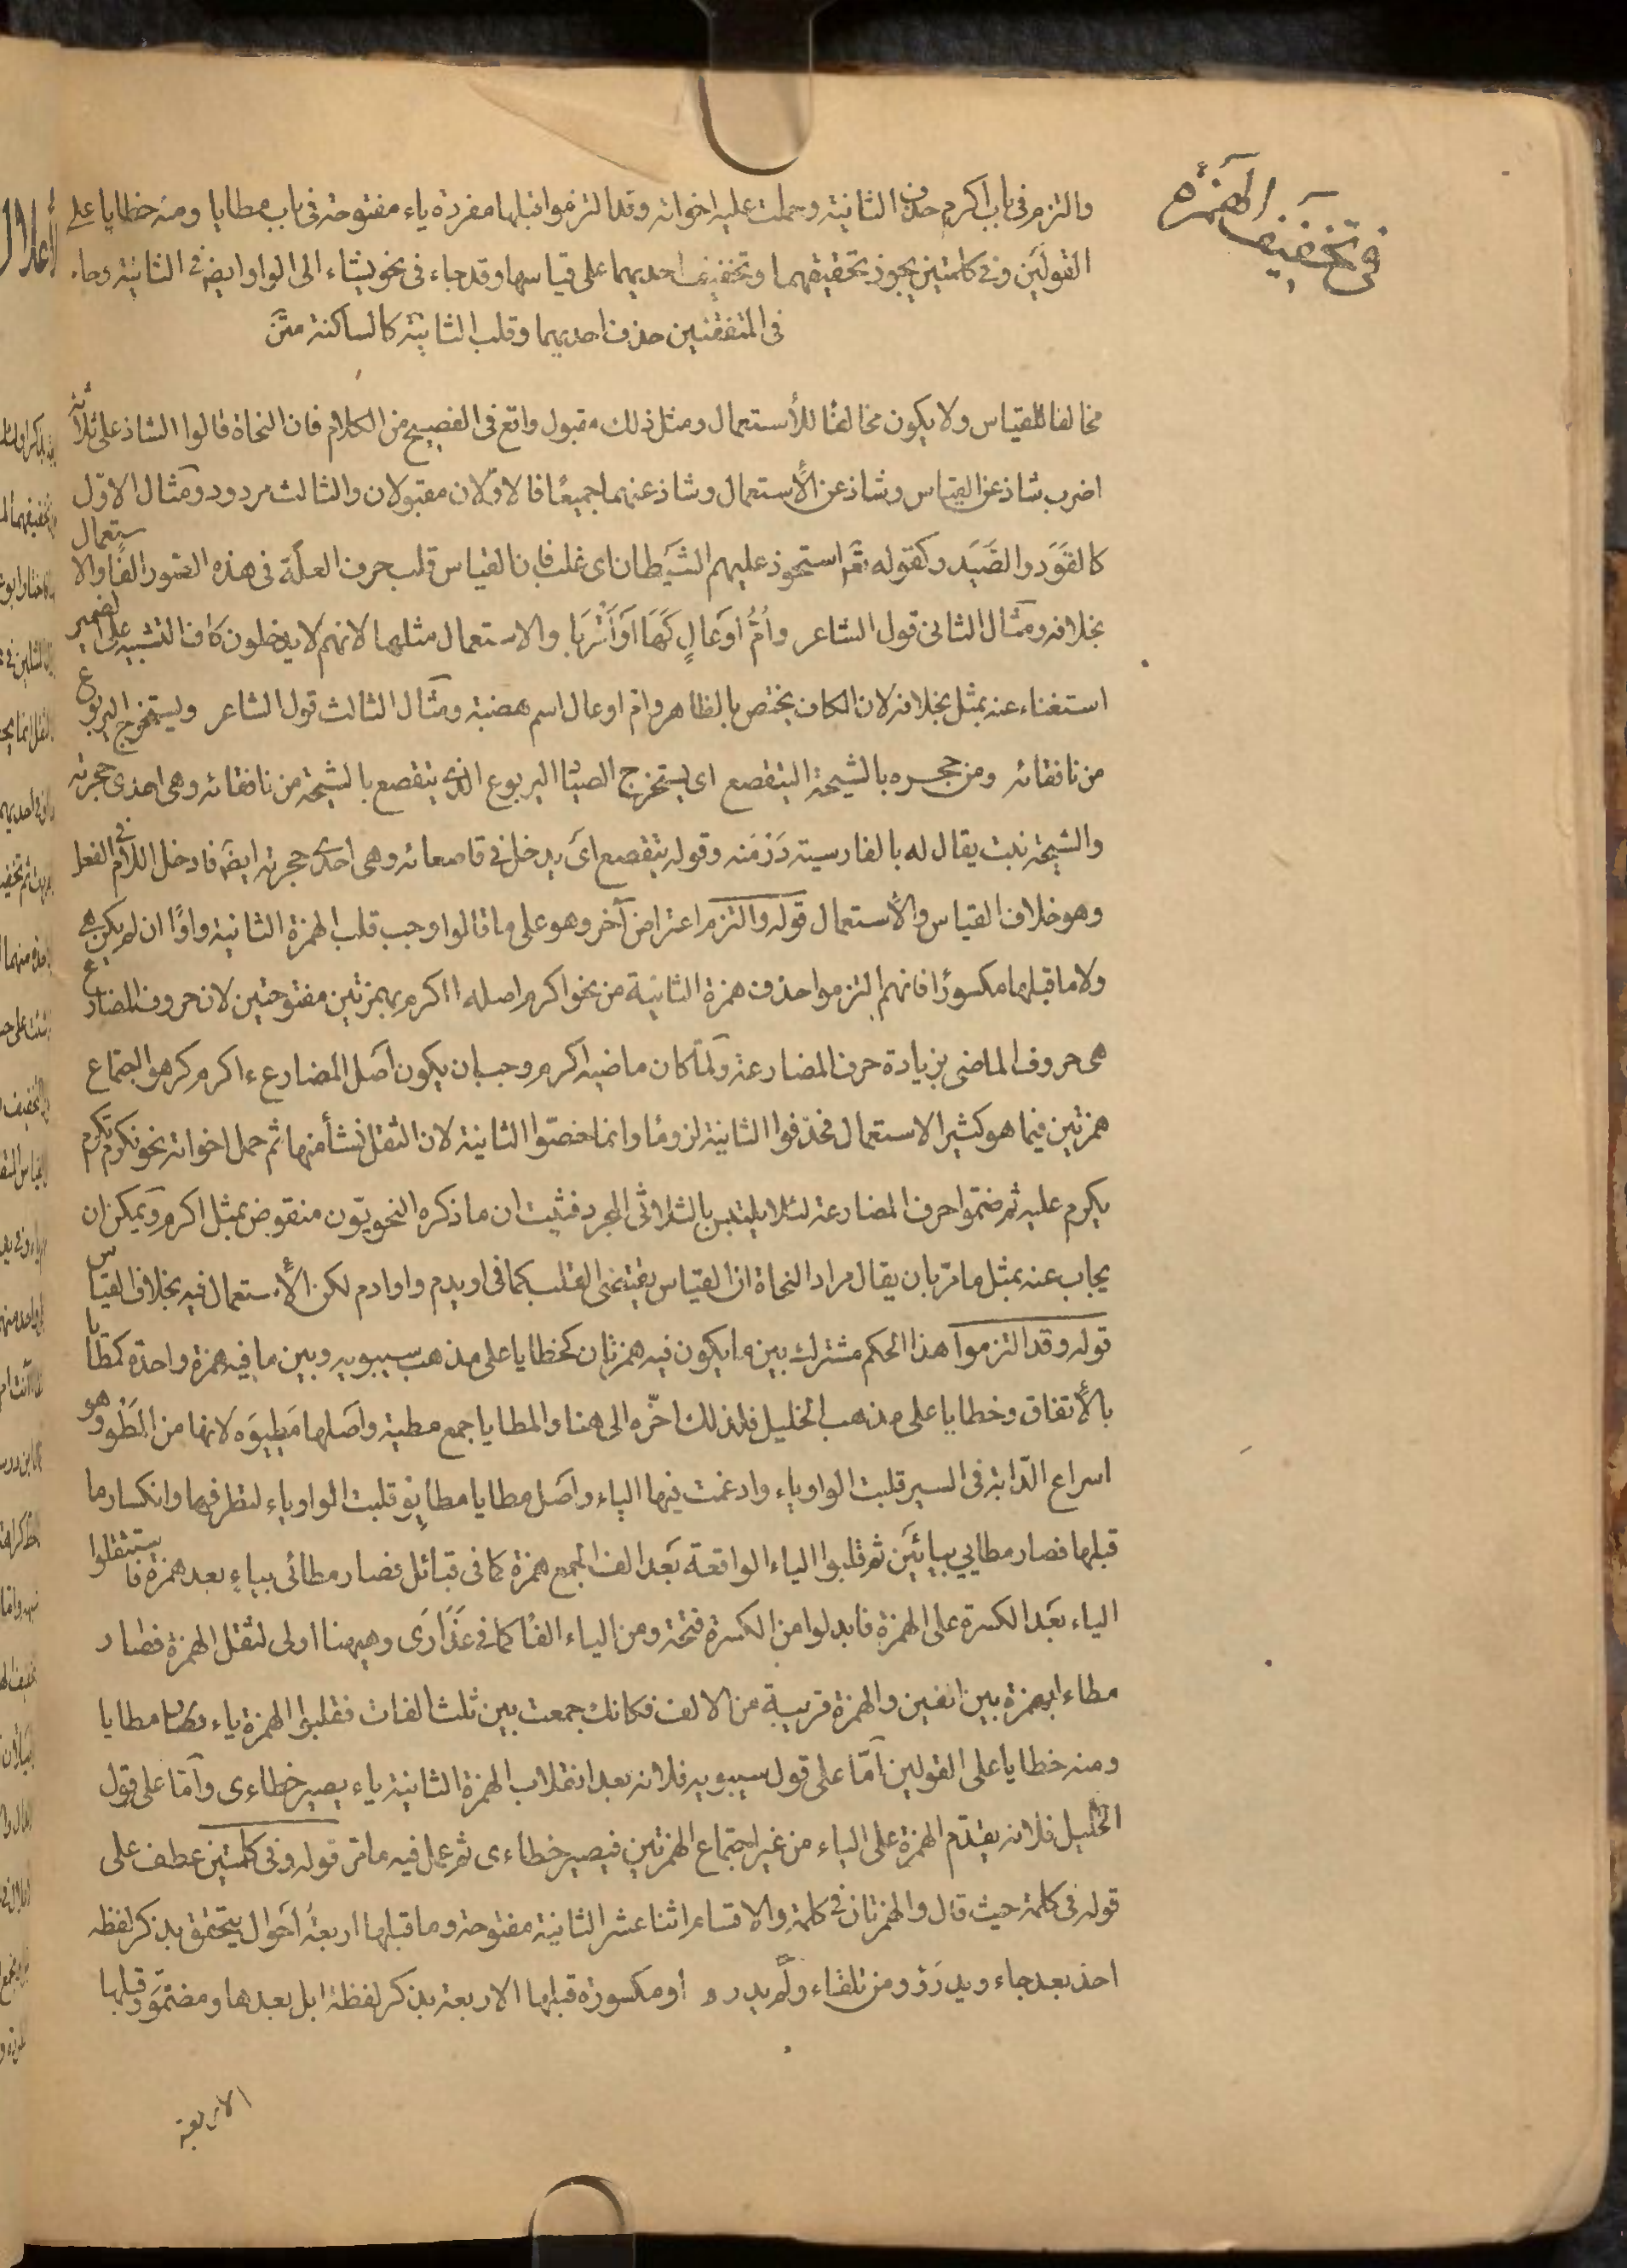 في تخفيف الهمزة
والتزم في باب اكرم حذف الثانية وحملت عليه اخواته وقد التزموا قبلها مفردة ياء مفتوحة في باب مطايا ومنه خطايا على
القولين وفي كلمتين يجوز تحقيقهما وتخفيف احديهما على قياسها وقد جاء في نحو يشاء الى الواو ايضا في الثانية وجاء
في المتفقتين حذف احديهما وقلب الثانية كالساكنة متن
مخالفا للقياس ولا يكون مخالفا للأستعمال ومثل ذلك مقبول واقع في الفصيح من الكلام فان النحاة قالوا الشاذ على ثلاثة
اضرب شاذ عن القياس وشاذ عن الأستعمال وشاذ عنهما جميعًا فالاوّلان مقبولان والثالث مردود ومثال الاوّل
كالقَوَد والصَيَد وكقوله تعم استحوذ عليهم الشيطان اى غلب فان القياس قلب حرف العلّة في هذه الصور الفًا والاستعمال
بخلافه ومثال الثاني قول الشاعر وأمُّ أوعالٍ كَهَا أوأقْرَبا والاستعمال مثلها لانهم لا يدخلون كاف التشبيه على الضمير
استغناء عنه بمثل بخلافه لان الكاف يختص بالظاهر وام اوعال اسم هضبة ومثال الثالث قول الشاعر ويستخرج اليربوع
من نافقائه ومن جحره بالشيحة اليتقصع اى يستخرج الصياد اليربوع الذى يتقصع بالشيحة من نافقائه وهى احدى جحرته
والشيحة نبت يقال له بالفارسية دَرْمَنه وقوله يتقصع اى يدخل في قاصعائه وهى احدى جحرته ايضا فادخل اللام في الفعل
وهو خلاف القياس والأستعمال قوله والتزم اعتراض آخر وهو على ما قالوا وجب قلب الهمزة الثانية واوًا ان لم يكن هى
ولا ما قبلها مكسورًا فانهم التزموا حذف همزة الثانية من نحو اكرم اصله ااكرم بهمزتين مفتوحتين لان حروف المضارع
هى حروف الماضى بزيادة حرف المضارعة ولمّا كان ماضيه اكرم وجب ان يكون اصل المضارع ءاكرم كرهوا اجتماع
همزتين فيما هو كثير الاستعمال فحذفوا الثانية لزومًا وانما خصّوا الثانية لان الثقل نشأ منها ثم حمل اخواته نحو نكرم تكرم
يكرم عليه ثم ضمّوا حرف المضارعة لئلا يلتبس بالثلاثى المجرد فثبت ان ما ذكره النحويّون منقوض بمثل اكرم ويمكن ان
يجاب عنه بمثل ما مرّ بان يقال مراد النحاة ان القياس يقتضى القلب كما فى اويدم واوادم لكن الأستعمال فيه بخلاف القياس
قوله وقد التزموا هذا الحكم مشترك بين ما يكون فيه همزتان كخطايا على مذهب سيبويه وبين ما فيه همزة واحدة كمطايا
بالأتفاق وخطايا على مذهب الخليل فلذلك اخّره الى هنا والمطايا جمع مطية واصلها مَطِيوَه لانها من المَطْوِ وهو
اسراع الدّابة فى السير قلبت الواو ياء وادغمت فيها الياء واصل مطايا مطايِو قلبت الواو ياء لتطرفها وانكسار ما
قبلها فصار مطايي بيائين ثم قلبوا الياء الواقعة بعد الف الجمع همزة كما فى قبائل فصار مطائى بياءٍ بعد همزة فاستثقلوا
الياء بعد الكسرة على الهمزة فابدلوا من الكسرة فتحة ومن الياء الفًا كما فى عَذَارَى وهيهنا اولى لثقل الهمزة فصار
مطاءا بهمزة بين الفين والهمزة قريبة من الالف فكانك جمعت بين ثلث الفات فقلبوا الهمزة ياء فصار مطايا
ومنه خطايا على القولين امّا على قول سيبويه فلانه بعد انقلاب الهمزة الثانية ياء يصير خطاءى وامّا على قول
الخليل فلانه يقدّم الهمزة على الياء من غير اجتماع الهمزتين فيصير خطاءى ثم عمل فيه ما مرّ قوله وفى كلمتين عطف على
قوله فى كلمة حيث قال والهمزتان فى كلمة والاقسام اثنا عشر الثانية مفتوحة وما قبلها اربعةُ احوال يتحقق بذكر لفظه
احذ بعد جاء ويدرَؤ ومن تلقاء ولم يدرء او مكسورة قبلها الاربعة بذكر لفظة ابل بعدها ومضمومة وقبلها
الاربعة